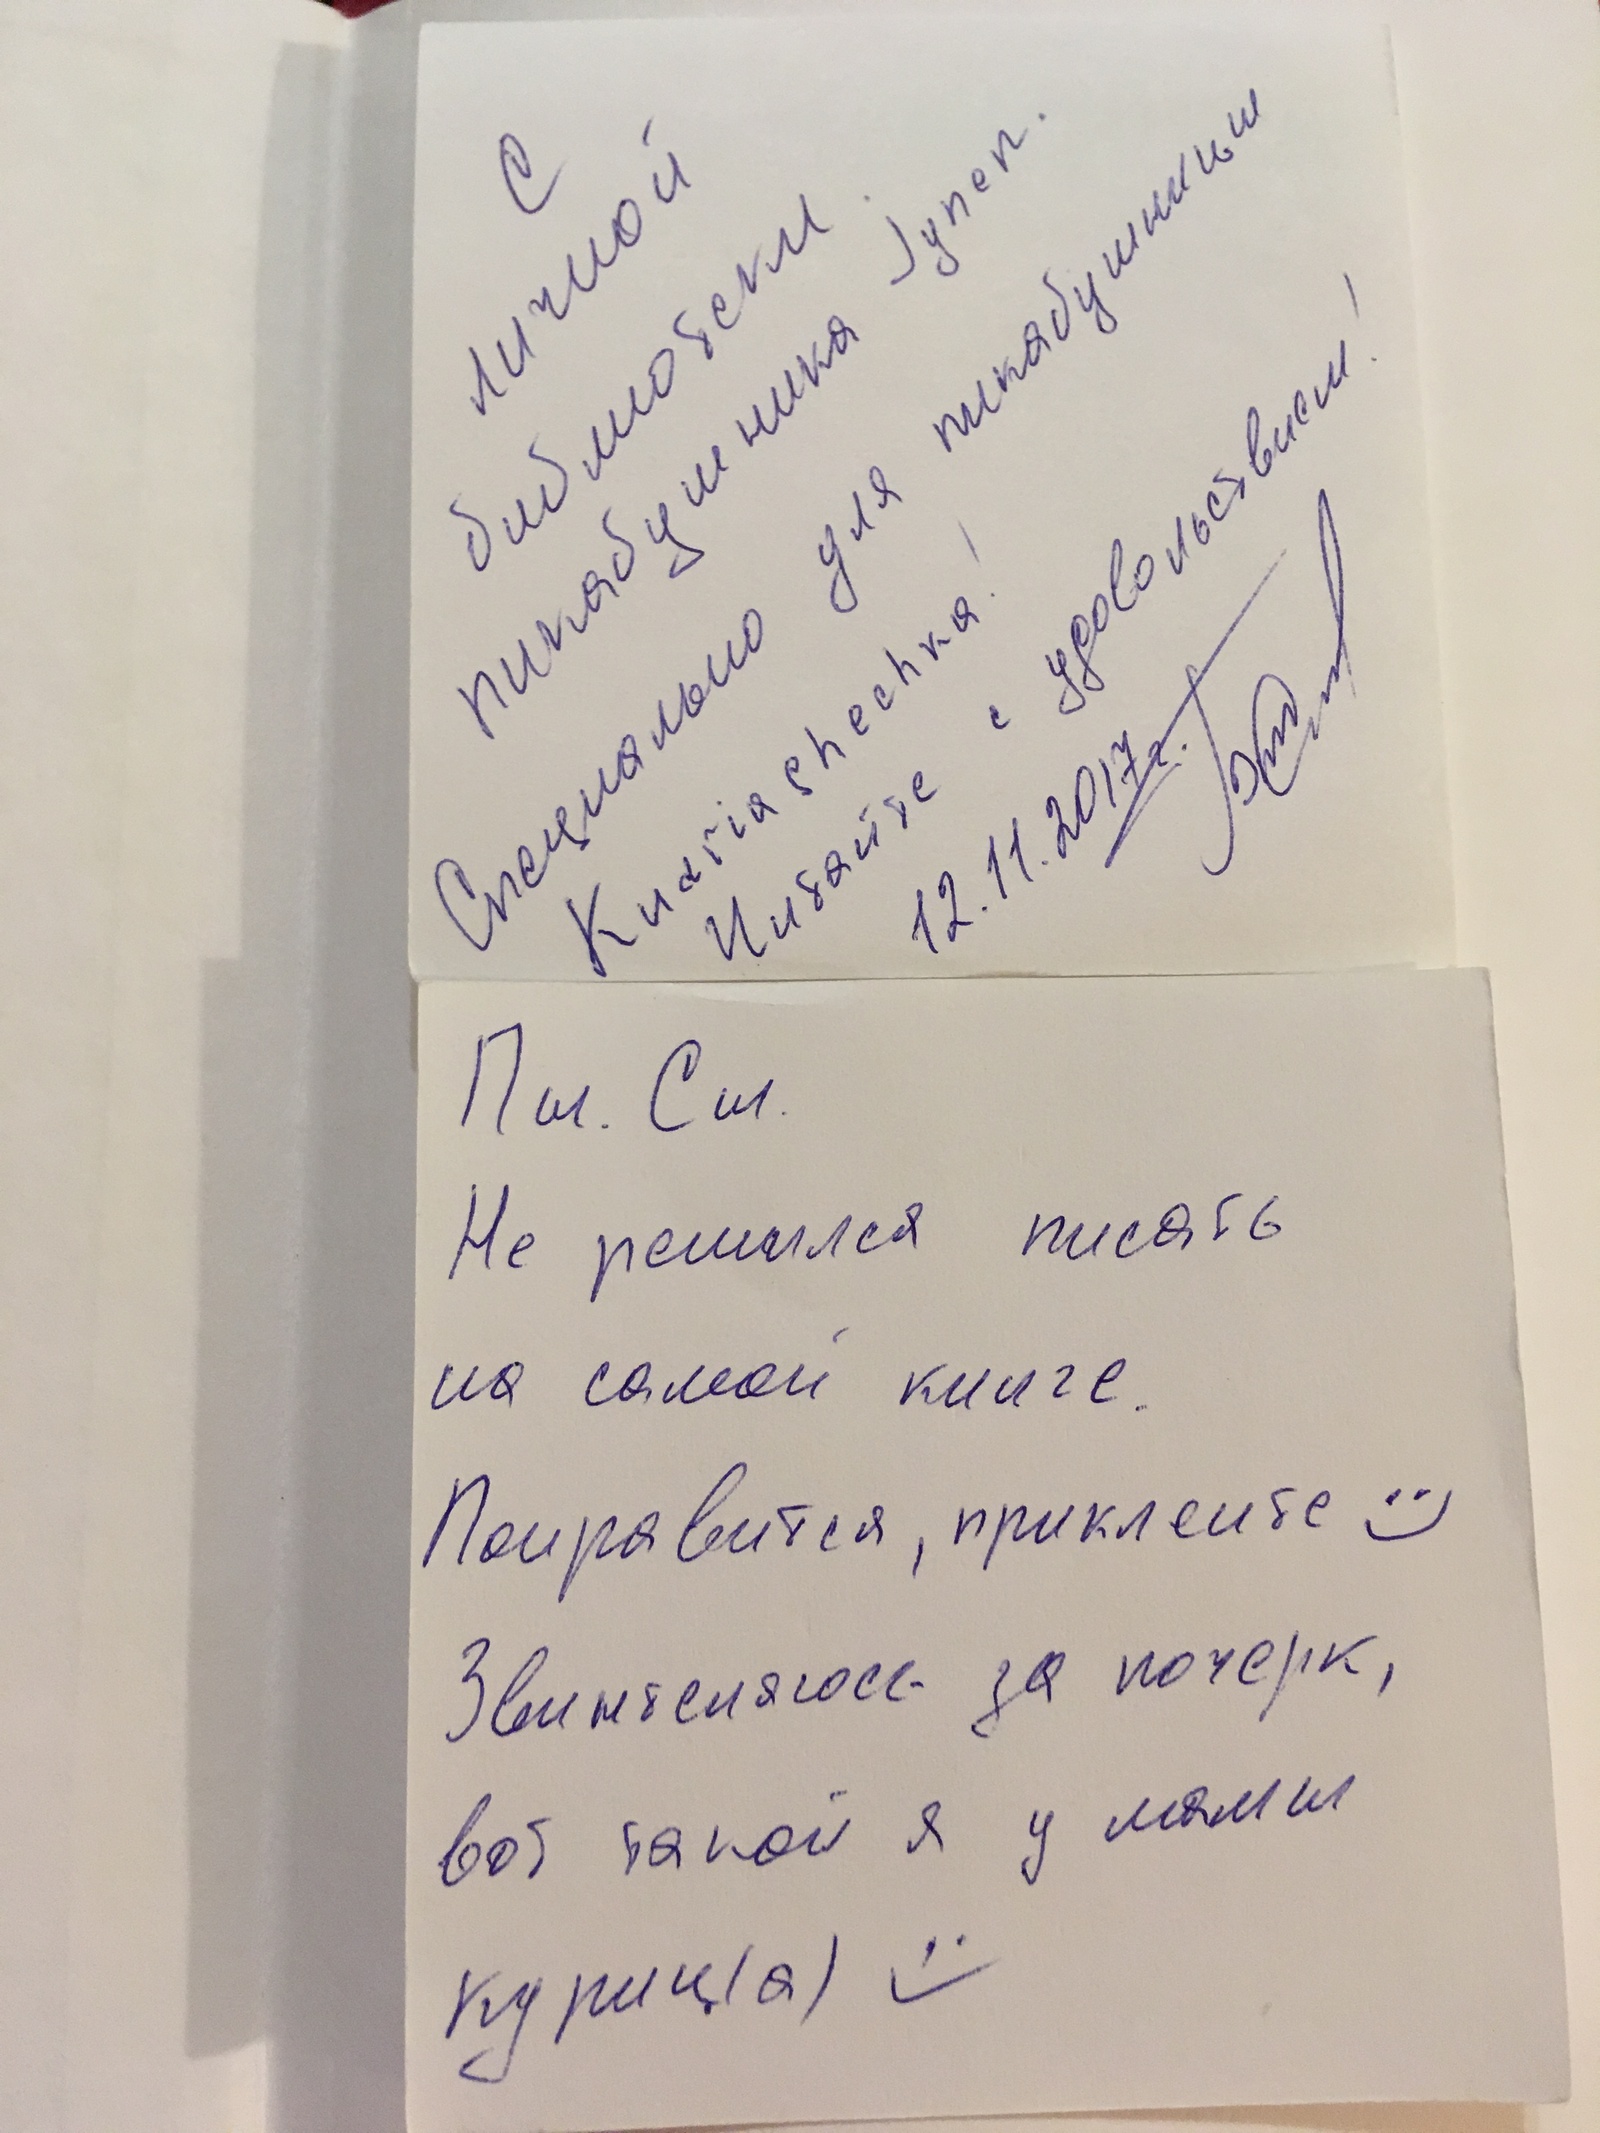 С
личной
библиотеки
пикабушника jynen.
Специально для пикабушницы
Knatiashechka!
Читайте с удовольствием!
12.11.2017г.
Пы. Сы.
Не решился писать
на самой книге.
Понравится, приклеите :)
Звинтеляюсь за почерк,
вот такой я у мамы
куриц(а) :)